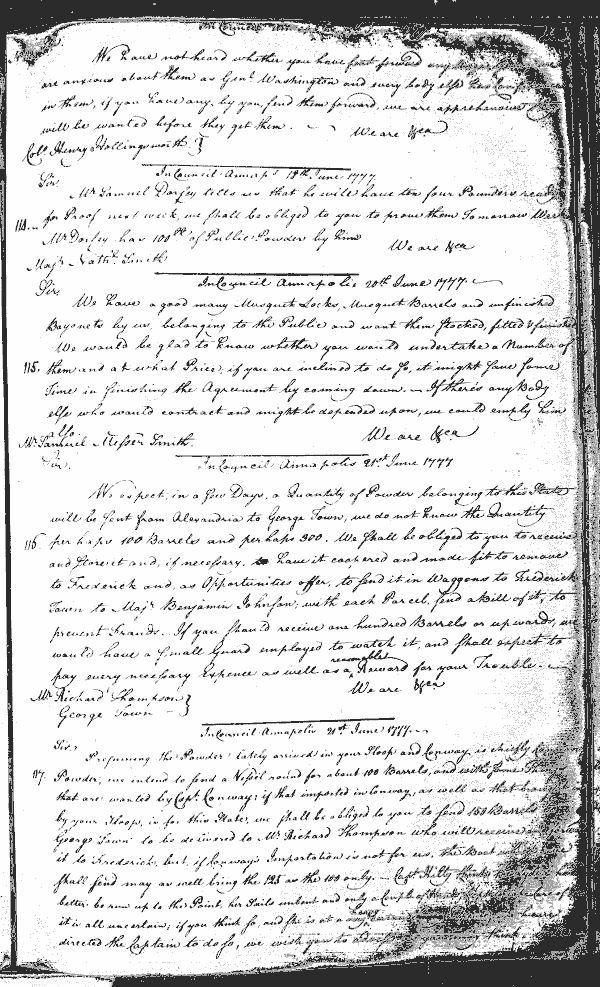 In Council
We have not heard whether you have sent forward any
are anxious about them as Genl. Washington and every body else has
in them, if you have any, by you, send them forward, we are apprehensive
will be wanted before they get them. We are &ca
Colo. Henry Hollingsworth }
In Council Annaps. 19th. June 1777.
Sir.
Mr Samuel Dorsey tells us that he will have ten four Pounders ready
for Proof next week, we shall be obliged to you to prove them Tomorrow Week
114.
Mr. Dorsey has 100lb of Public Powder by him
We are &ca
Majr. Nathl. Smith
In Council Annapolis 20th June 1777.
Sir.
We have a good many Musquet Locks, Musquet Barrels and unfinished
Bayonets by us, belonging to the Public and want them stocked, fitted & finished
We would be glad to know whether you would undertake a Number of
115. them and at what Price, if you are inclined to do so, it might save some
Time in finishing the Agreement by coming down. — If there is any Body
else who would contract and might be depended upon, we could employ him
also
We are &ca
Mr. Samuel Messer Smith.
In Council Annapolis 21st June 1777
Sir.
We expect, in a few Days, a Quantity of Powder belonging to this State
will be sent from Alexandria to George Town, we do not know the Quantity
116 perhaps 100 Barrels and perhaps 300. We shall be obliged to you to receive
and store it and, if necessary, to have it coopered and made fit to remove
to Frederick and, as Opportunities offer, to send it in Waggons to Frederick
Town to Majr Benjamin Johnson, with each Parcel, send a Bill of it, to
prevent Frauds. If you should receive one hundred Barrels or upwards, we
would have a small Guard employed to watch it, and shall expect to
pay every necessary Expence as well as a reasonable Reward for your Trouble.
We are &ca
Mr Richard Thompson }
George Town
In Council Annapolis 21st June 1777.
Sir.
Presuming the Powder lately arrived in your Sloop and Conway, is chiefly
117. Powder, we intend to send a Vessel round for about 100 Barrels, and with some
that are wanted by Capt. Conway; if that imported in Conway, as well as that
by your Sloop, is for this State, we shall be obliged to you to send 150 Barrels
George Town to be delivered to Mr Richard Thompson who will receive
it to Frederick, but, if Conway's Importation is not for us, the Boat
shall send may as well bring the 125 as the 100 only. — Capt
better be run up to the Point, her Sails unbent and only a Couple of
it is all uncertain, if you think so, and she is at a
directed the Captain to do so, we wish you to